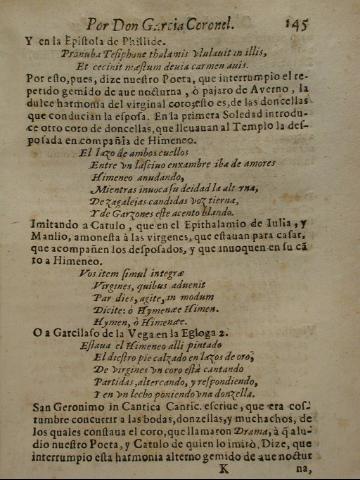 Por Don Garcia Coronel. 145
Y en la Epistola de Phillide.
Pronuba Tesiphone thalamis vlulauit in illis,
Et cecinit mæstum deuia carmen auis.
Por esto, pues, dize nuestro Poeta, que interrumpio el re-
petido gemido de aue nocturna, ò pajaro de Averno, la
dulce harmonia del virginal coro; esto es, de las doncellas
que conducian la esposa. En la primera Soledad introdu-
ce otro coro de doncellas, que lleuauan al Templo la des-
posada en compañia de Himeneo.
El lazo de ambos cuellos
Entre vn lasciuo enxambre iba de amores
Himeneo anudando,
Mientras inuoca su deidad la alterna,
De zagalejas candidas voz tierna,
Y de Garzones este acento blando.
Imitando a Catulo, que en el Epithalamio de Iulia, y
Manlio, amonesta à las virgenes, que estauan para casar,
que acompañen los desposados, y que inuoquen en su cã
to a Himeneo.
Vos item simul integræ
Virgines, quibus aduenit
Par dies, agite, in modum
Dicite: ò Hymenæe Himen.
Hymen, ò Himenæe.
O a Garcilaso de la Vega en la Egloga 2.
Estaua el Himeneo alli pintado
El diestro pie calzado en lazos de oro,
De virgines vn coro està cantando
Partidas, altercando, y respondiendo,
Y en vn lecho poniendo vna donzella.
San Geronimo in Cantica Cantic. escriue, que era cos-
tumbre concurrir a las bodas, donzellas, y muchachos, de
los quales constaua el coro, que llamaron Drama, à q̃ alu-
dio nuestro Poeta, y Catulo de quien lo imitò. Dize, que
interrumpio esta harmonia alterno gemido de aue noctur
K na,